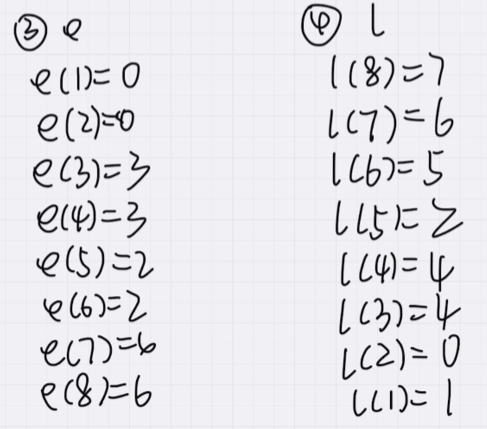 ③ e
e(1)=0
e(2)=0
e(3)=3
e(4)=3
e(5)=2
e(6)=2
e(7)=6
e(8)=6
④ l
l(8)=7
l(7)=6
l(6)=5
l(5)=2
l(4)=4
l(3)=4
l(2)=0
l(1)=1